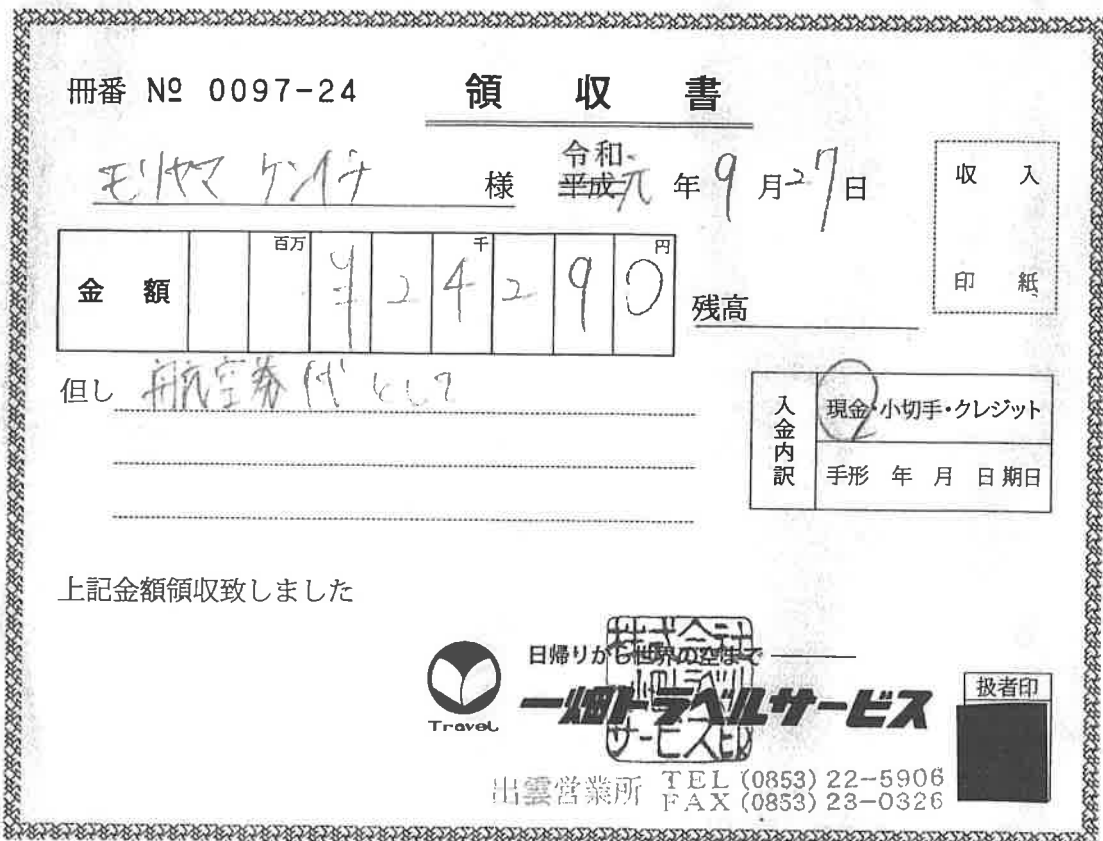 冊番 № 0097-24
領収書
モリヤマ ケンイチ 様
令和
平成元年9月27日
収入
印紙
金額 百万 千 円
¥24290
残高
但し 航空券代として
入金内訳
現金・小切手・クレジット
手形 年 月 日期日
上記金額領収致しました
Travel
日帰りから世界の空まで
一畑トラベルサービス
株式会社
一畑トラベル
サービス印
扱者印
出雲営業所 TEL (0853) 22-5906
FAX (0853) 23-0326